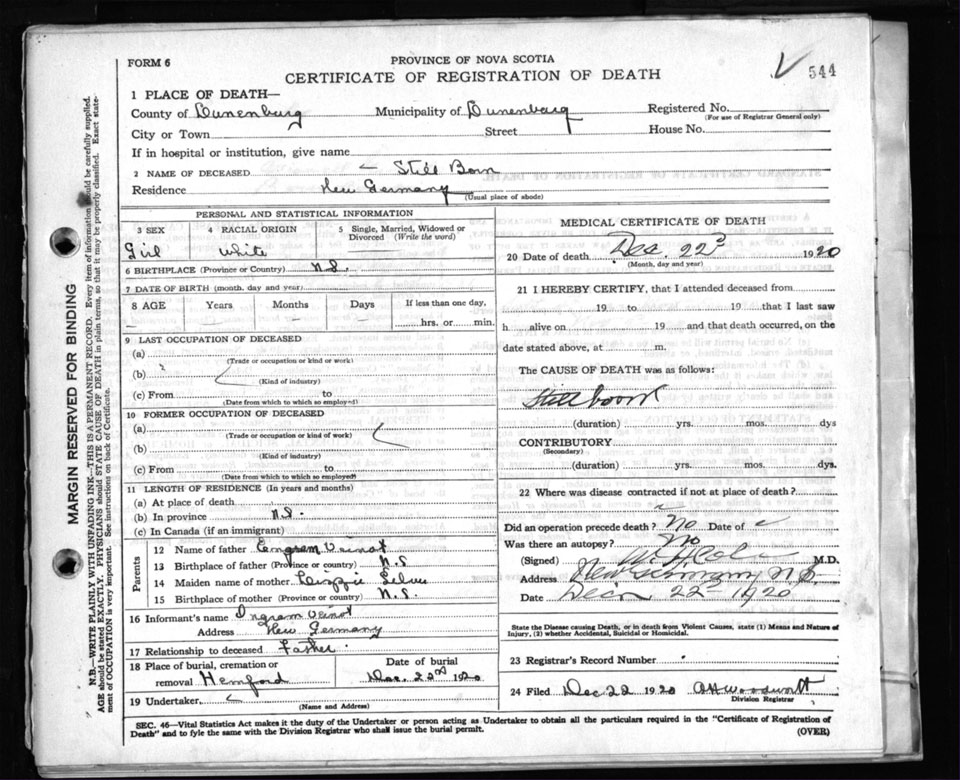 FORM 6
PROVINCE OF NOVA SCOTIA
CERTIFICATE OF REGISTRATION OF DEATH
544
1 PLACE OF DEATH—
County of Lunenburg Municipality of Lunenburg Registered No.
(For use of Registrar General only)
City or Town Street House No.
If in hospital or institution, give name
2 NAME OF DECEASED Still Born
Residence New Germany
(Usual place of abode)
PERSONAL AND STATISTICAL INFORMATION
3 SEX 4 RACIAL ORIGIN 5 Single, Married, Widowed or Divorced (Write the word)
Girl White
6 BIRTHPLACE (Province or Country) N.S.
7 DATE OF BIRTH (month, day and year)
8 AGE Years Months Days If less than one day,
hrs. or min.
9 LAST OCCUPATION OF DECEASED
(a)
(Trade or occupation or kind or work)
(b)
(Kind of industry)
(c) From to
(Date from which to which so employed)
10 FORMER OCCUPATION OF DECEASED
(a)
(Trade or occupation or kind of work)
(b)
(Kind of industry)
(c) From to
(Date from which to which so employed)
11 LENGTH OF RESIDENCE (In years and months)
(a) At place of death
(b) In province N.S.
(c) In Canada (if an immigrant)
Parents
12 Name of father Veinot
13 Birthplace of father (Province or country) N.S
14 Maiden name of mother Lizzie
15 Birthplace of mother (Province or country) N.S.
16 Informant's name Ingram Veinot
Address New Germany
17 Relationship to deceased Father
18 Place of burial, cremation or removal Hemford
Date of burial
Dec. 22nd 1920
19 Undertaker
(Name and Address)
MEDICAL CERTIFICATE OF DEATH
20 Date of death Dec. 22 1920
(Month, day and year)
21 I HEREBY CERTIFY, that I attended deceased from
19 to 19 that I last saw
h alive on 19 and that death occurred, on the
date stated above, at m.
The CAUSE OF DEATH was as follows:
Stillborn
(duration) yrs. mos. dys
CONTRIBUTORY
(Secondary)
(duration) yrs. mos. dys.
22 Where was disease contracted if not at place of death?
Did an operation precede death? No Date of
Was there an autopsy? No
(Signed) M.D.
Address New Germany N.S.
Date Decr 22nd 1920
State the Disease causing Death, or in death from Violent Causes, state (1) Means and Nature of
Injury, (2) whether Accidental, Suicidal or Homicidal.
23 Registrar's Record Number
24 Filed Dec 22 1920
Division Registrar
SEC. 46—Vital Statistics Act makes it the duty of the Undertaker or person acting as Undertaker to obtain all the particulars required in the "Certificate of Registration of
Death" and to fyle the same with the Division Registrar who shall issue the burial permit.
(OVER)
MARGIN RESERVED FOR BINDING
N.B.—WRITE PLAINLY WITH UNFADING INK—THIS IS A PERMANENT RECORD. Every item of information should be carefully supplied.
AGE should be stated EXACTLY. PHYSICIANS should STATE CAUSE OF DEATH in plain terms, so that it may be properly classified. Exact state-
ment of OCCUPATION is very important. See instructions on back of Certificate.